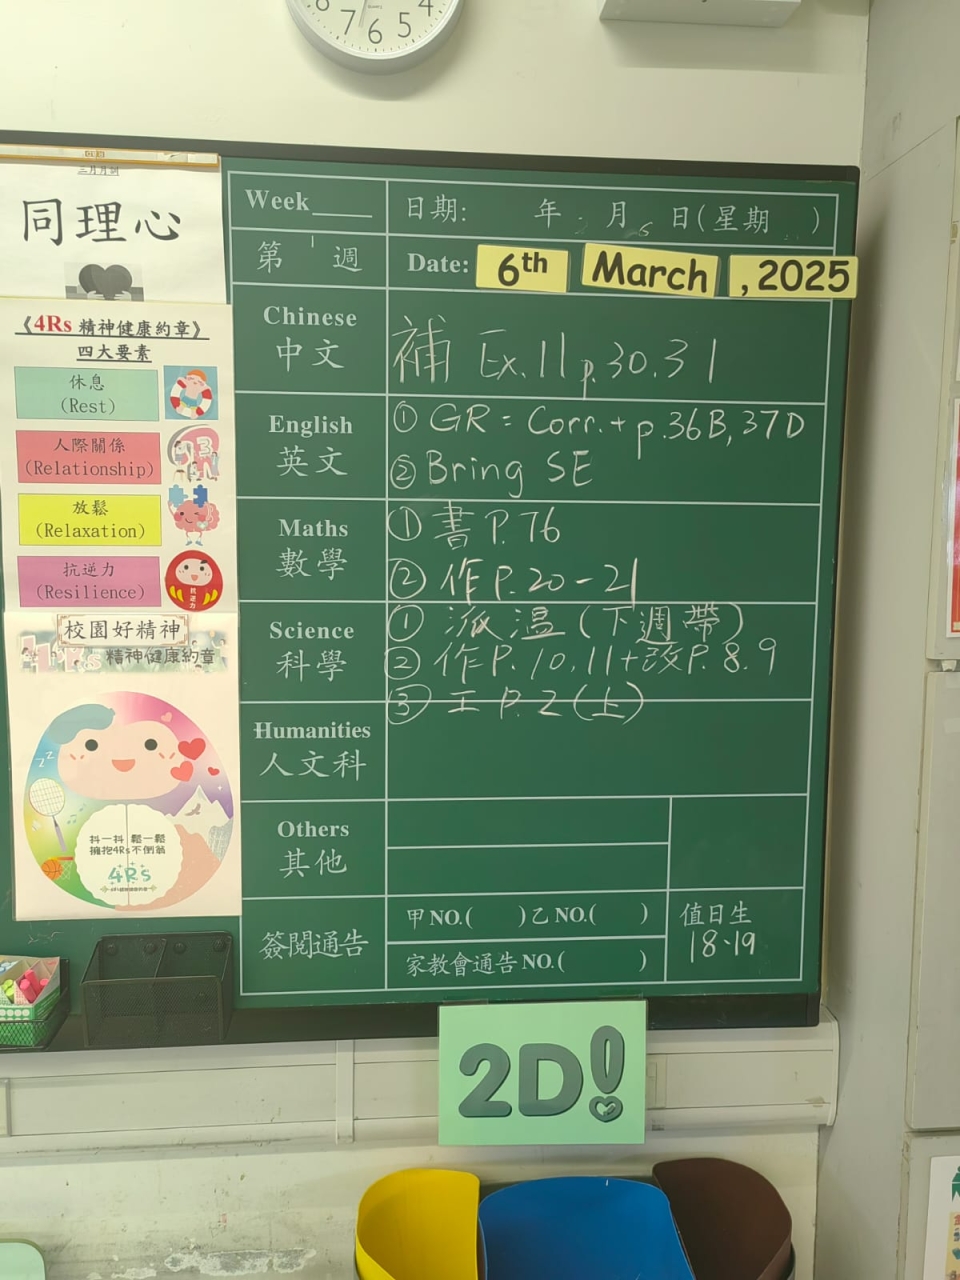 7 6 5 4
三月月訓
同理心
《4Rs 精神健康約章》
四大要素
休息
(Rest)
人際關係
(Relationship)
放鬆
(Relaxation)
抗逆力
(Resilience)
抗逆力
校園好精神
4Rs 精神健康約章
抖一抖 鬆一鬆
擁抱4Rs不倒翁
4Rs
Week____ 日期: 年 月 6 日(星期 )
第 週 Date: 6th March , 2025
Chinese
中文
補 Ex.11 p.30.31
English
英文
① GR = Corr.+ p.36B, 37D
② Bring SE
Maths
數學
① 書 P.76
② 作 P.20-21
Science
科學
① 派溫(下週帶)
② 作P.10,11+改P.8.9
③ 工 P.2(上)
Humanities
人文科
Others
其他
簽閱通告
甲NO.( )乙NO.( )
家教會通告NO.( )
值日生
18.19
2D!